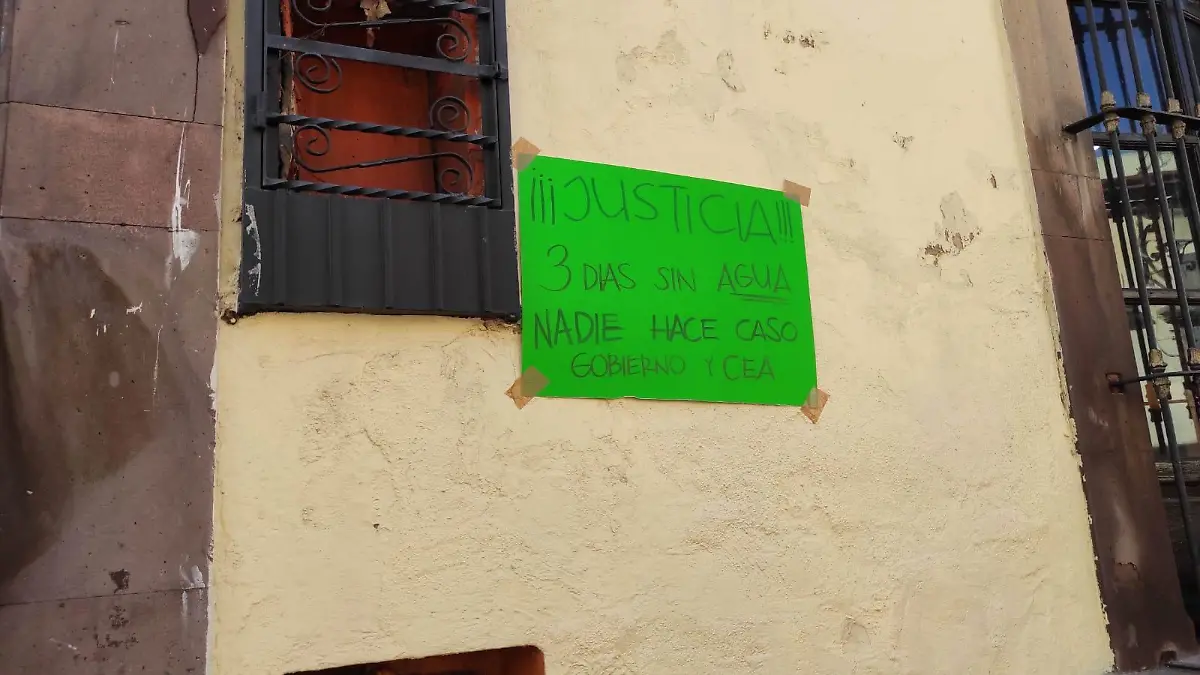 ¡¡¡JUSTICIA!!!
3 DIAS SIN AGUA
NADIE HACE CASO
GOBIERNO Y CEA